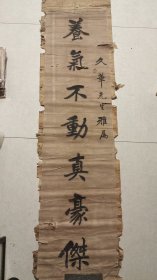 久華先生雅屬
養氣不動真豪傑